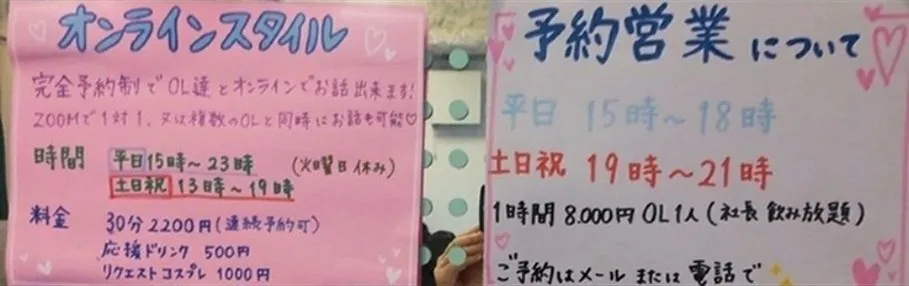 オンラインスタイル
完全予約制でOL達とオンラインでお話出来ます!
ZOOMで1対1、又は複数のOLと同時にお話も可能♡
時間 平日15時～23時 (火曜日休み)
土日祝 13時～19時
料金 30分2200円(連続予約可)
応援ドリンク 500円
リクエストコスプレ 1000円
予約営業について
平日 15時～18時
土日祝 19時～21時
1時間 8.000円 OL1人(社長飲み放題)
ご予約はメールまたは電話で